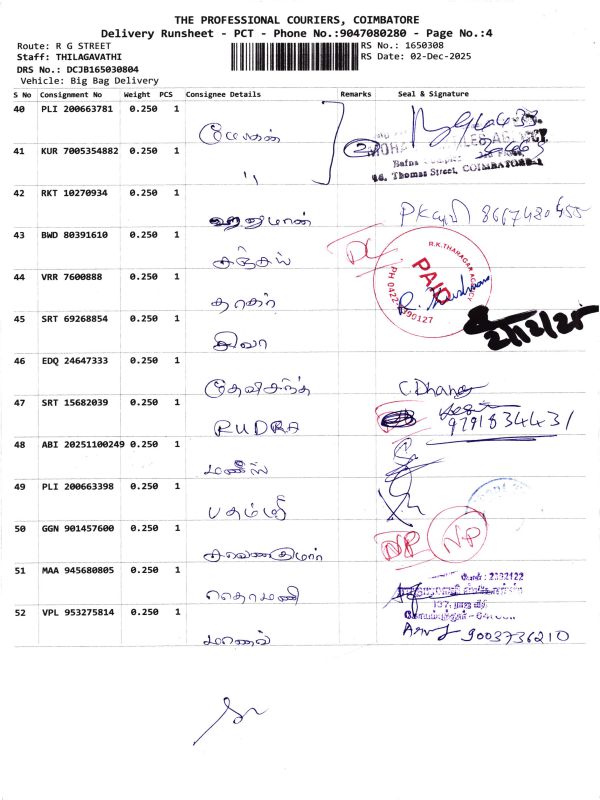 THE PROFESSIONAL COURIERS, COIMBATORE
Delivery Runsheet - PCT - Phone No.:9047080280 - Page No.:4
Route: R G STREET
RS No.: 1650308
Staff: THILAGAVATHI
RS Date: 02-Dec-2025
DRS No.: DCJB165030804
Vehicle: Big Bag Delivery
S No Consignment No Weight PCS Consignee Details Remarks Seal & Signature
40 PLI 200663781 0.250 1
மோகன்
41 KUR 7005354882 0.250 1
"
2
46, Thomas Street, COIMBATORE-1
42 RKT 10270934 0.250 1
ஹனுமான்
43 BWD 80391610 0.250 1
சஞ்சய்
DC
R.K.THARAGAR AGENCY
PAID
44 VRR 7600888 0.250 1
தரகர்
45 SRT 69268854 0.250 1
சிவா
2/12/25
46 EDQ 24647333 0.250 1
தேவிசந்த்
C Dhana
47 SRT 15682039 0.250 1
RUDRA
9791834431
48 ABI 20251100249 0.250 1
மணீஸ்
49 PLI 200663398 0.250 1
பதம்ஸ்ரீ
50 GGN 901457600 0.250 1
சரவணகுமார்
NP NP
51 MAA 945680805 0.250 1
தொமணி
போன் : 2392122
52 VPL 953275814 0.250 1
மாணவ்
9003736210